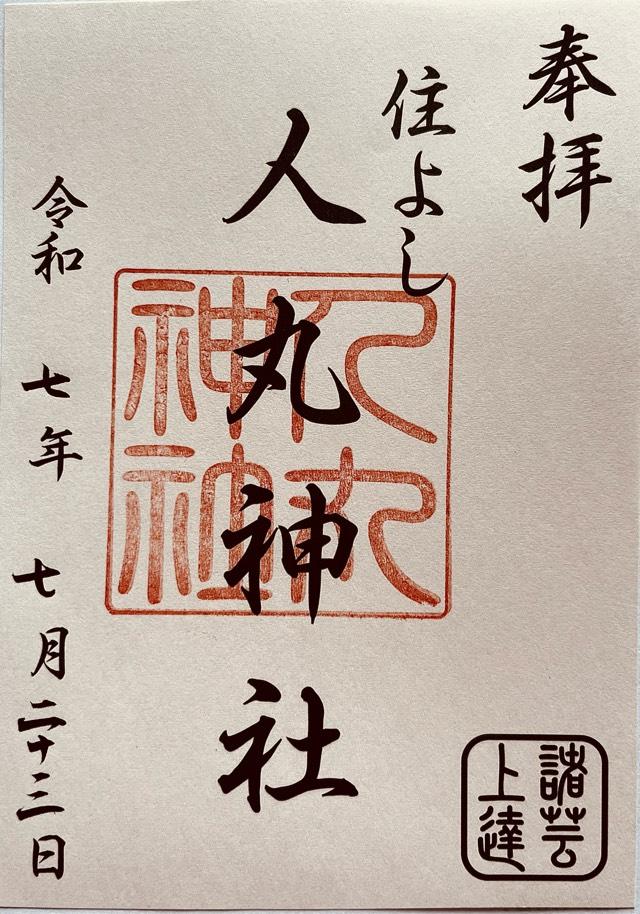 奉拝
住よし
人丸神社
人丸
神社
令和 七年 七月二十三日
諸芸
上達